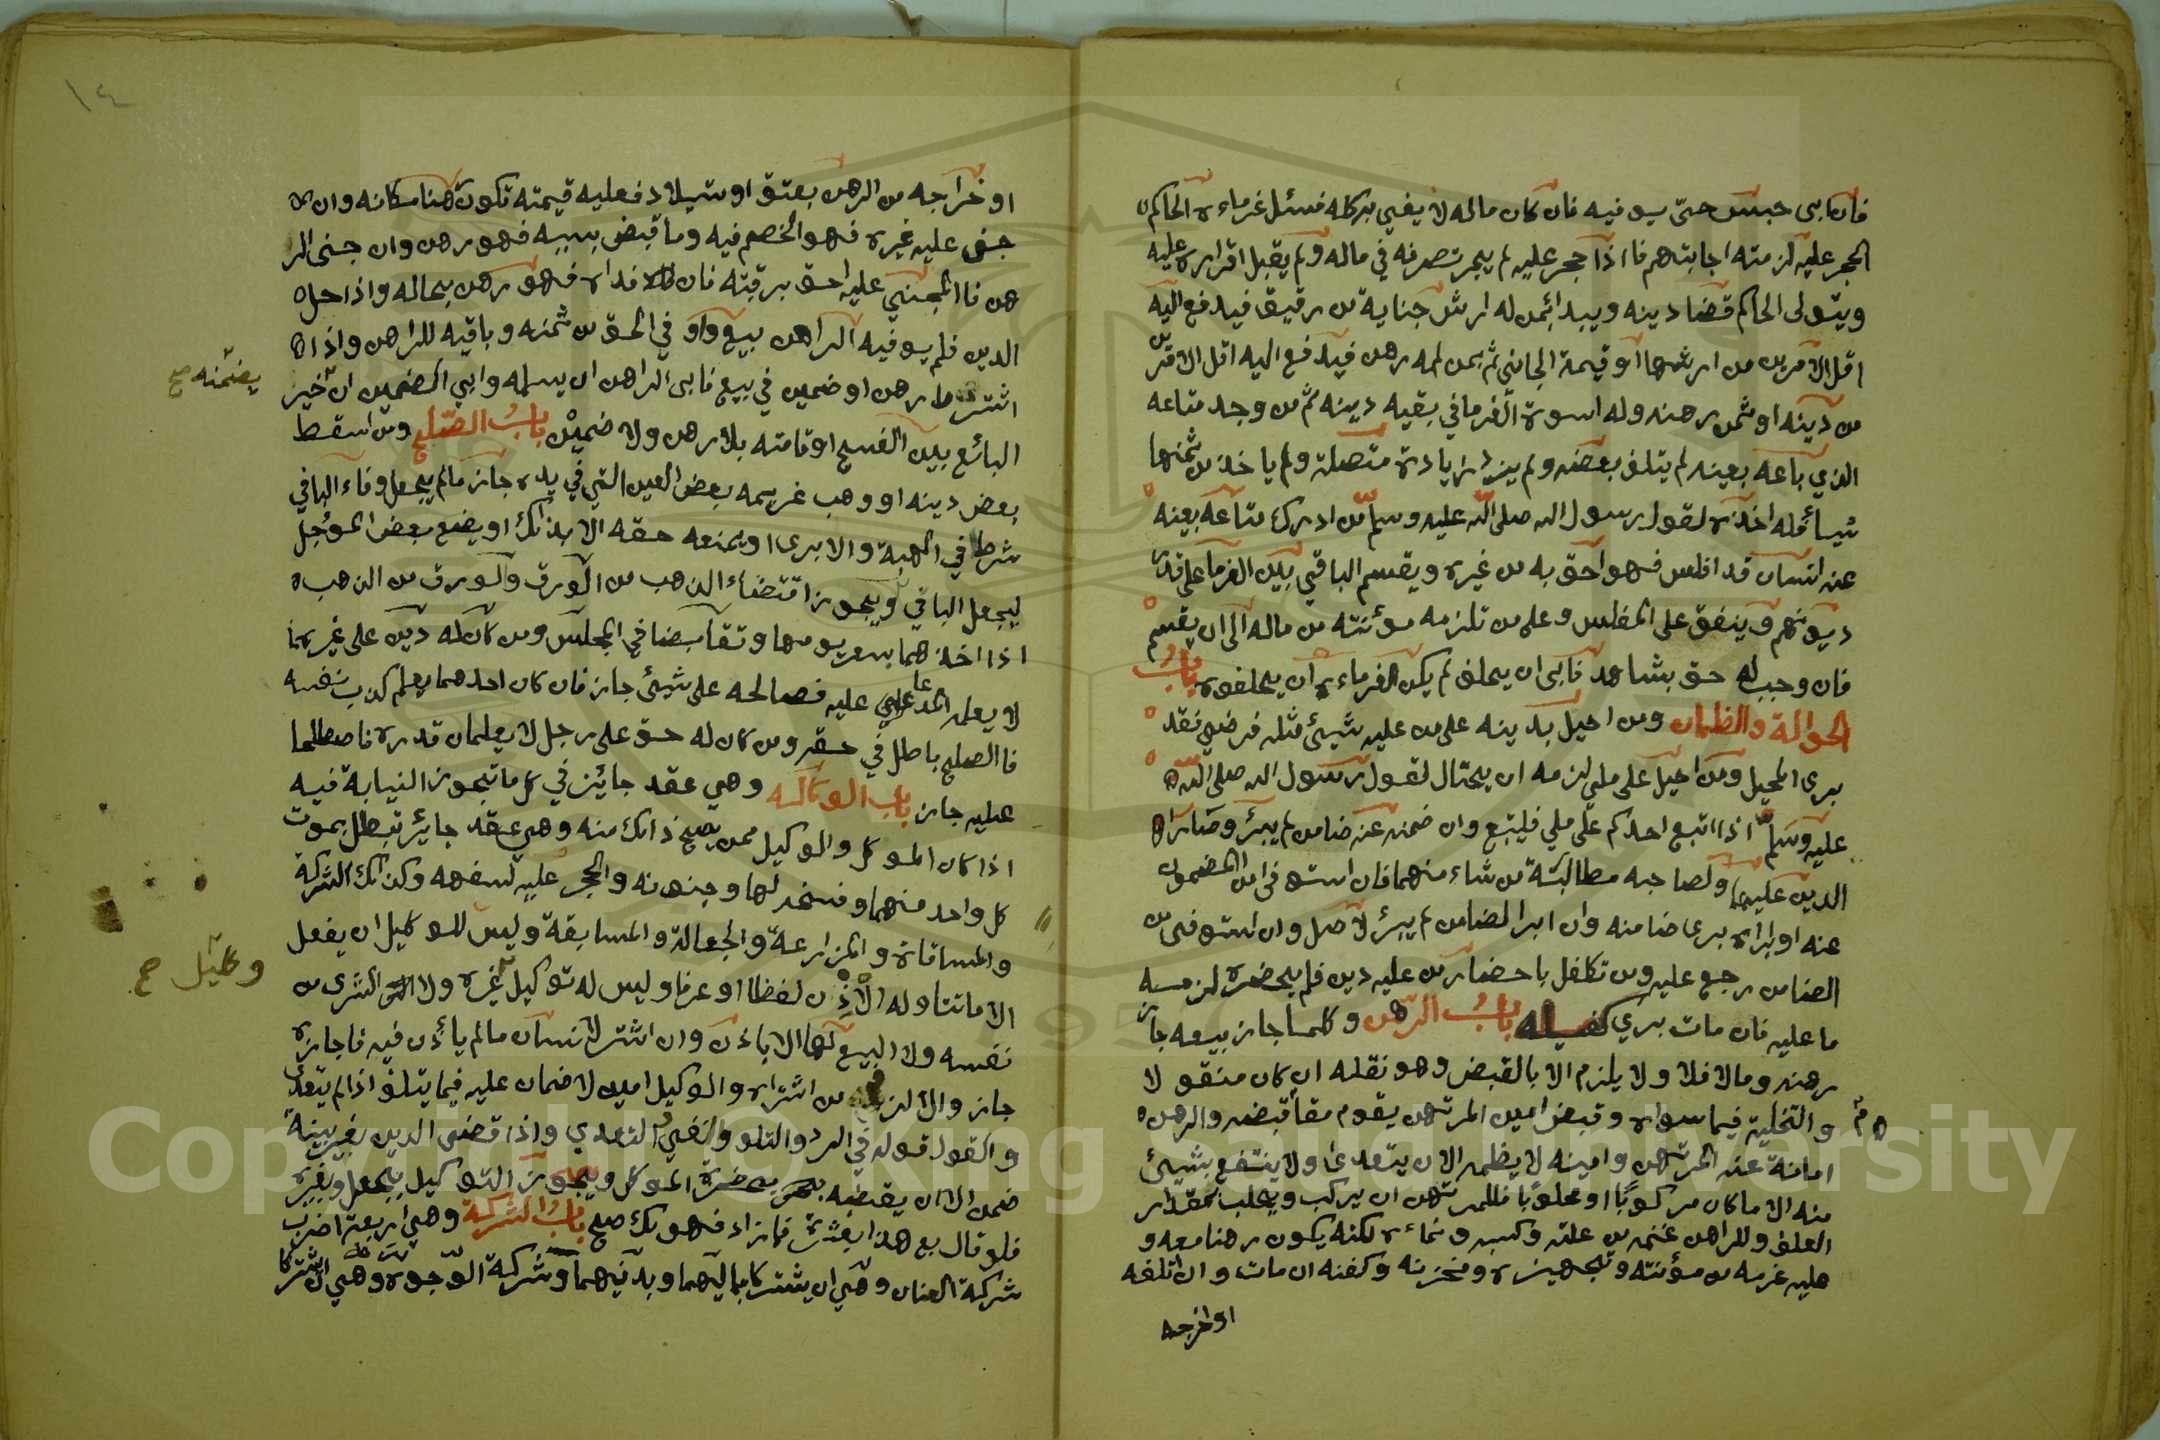 فان ابى حبس حتى يوفيه فان كان ماله لا يفي به كله فسئل غرماءه الحاكم
الحجر عليه لزمته اجابتهم فاذا حجر عليه لم يجز تصرفه في ماله ولم يقبل اقراره عليه
ويتولى الحاكم قضا دينه ويبدا بمن له ارش جناية من رقيقه فيدفع اليه
اقل الامرين من ارشها او قيمة الجاني ثم بمن له رهن فيدفع اليه اقل الامرين
من دينه او ثمن رهنه وله اسوة الغرما في بقيه دينه ثم من وجد متاعه
الذي باعه بعينه لم يتلف بعضه ولم يزد زيادة متصلة ولم ياخذ من ثمنها
شيا فله اخذه لقول رسول الله صلى الله عليه وسلم من ادرك متاعه بعينه
عند انسان قد افلس فهو احق به من غيره ويقسم الباقي بين الغرما على قدر
ديونهم وينفق على المفلس وعلى من تلزمه مؤنته من ماله الى ان يقسم
فان وجب له حق بشاهد فابى ان يحلف لم يكن لغرماءه ان يحلفوه باب
الحوالة والظمان ومن احيل بدينه على من عليه شيئ مثله فرضي فقد
برى المحيل ومن احيل على ملي لزمه ان يحتال لقول رسول الله صلى الله
عليه وسلم اذا اتبع احدكم على ملي فليتبع وان ضمنه عنه ضامن لم يبرؤ وصار
الدين عليهما ولصاحبه مطالبة من شاء منهما فان استوفى من المضمون
عنه او ابراه برى ضامنه وان ابرا لضامن لم يبرؤ لاصل وان استوفى من
الضامن رجع عليه ومن تكفل باحضار من عليه دين فلم يحضره لزمه
ما عليه فان مات بري كفيله باب الرهن وكلما جاز بيعه جاز
رهنه ومالا فلا ولا يلزم الا بالقبض وهو نقله ان كان منقولا
والتخلية فيما سواه وقبض امين المرتهن يقوم مقام قبضه والرهن
امانة عند المرتهن وامينه لا يظمنه الا ان يتعدى ولا ينتفع بشيئ
منه الا ما كان مركوبا او محلوبا فللمرتهن ان يركب ويحلب بمقدار
العلف وللراهن غنمه من غلته وكسبه ونماءه لكنه يكون رهنا معه و
عليه غرمه من مؤنته وتجهيزه ومخزنه وكفنه ان مات وان اتلفه
او اخرجه
١٤
او خراجه من الرهن بعتق او ستيلاد فعليه قيمته تكون رهنا مكانه وان
جنى عليه غيره فهو الخصم فيه وما قبض بسببه فهو رهن وان جنى الر
هن فاالمجني عليه احق برقبته فان فداه فهو رهن بحاله واذا حل
الدين فلم يوفيه الراهن بيع واوفي الحق من ثمنه وباقيه للراهن واذا
اشترط رهن او ضمين في بيع فابى الراهن ان يسلمه وابي الضمين ان خير
يضمنه صح
البائع بين الفسخ او قامته بلا رهن ولا ضمين باب الصلح ومن اسقط
بعض دينه او وهب غريمه بعض العين التي في يده جاز مالم يجعل وفاء الباقي
شرطا في الهبة والابرى او يمنعه حقه الا بذالك او يضع بعض المؤجل
ليجعل الباقي ويجوز اقتضاء الذهب من الورق والورق من الذهب
اذا اخذهما بسعر يومها وتقابضا في المجلس ومن كان له دين على غيرهما
لا يعلمه المدعا عليه فصالحه على شيئ جاز فان كان احدهما يعلم كذب نفسه
فا الصلح باطل في حقه ومن كان له حق على رجل لا يعلمان قدره فاصطلحا
عليه جاز باب الوكاله وهي عقد جايز في كل ما تجوز النيابة فيه
اذا كان الموكل والوكيل ممن يصح ذالك منه وهي عقد جايز تبطل بموت
كل واحد منهما وفسخه لها وجنونه والحجر عليه لسفهه وكذالك الشركة
والمساقاة والمزارعة والجعالة والمسابقة وليس للوكيل ان يفعل
الا ما تناوله الاذن لفظا او عرفا وليس له توكيل غيره ولا الشرى من
وكيل صح
نفسه ولا البيع لها الا باذن وان اشتر لانسان مالم ياذن فيه فاجازه
جاز والا لزم من اشتراه والوكيل امين لا ضمان عليه فيما يتلف اذا لم يتعد
والقول قوله في الرد والتلف ونفي التعدي واذا قضى الدين بغير بينة
ضمن الا ان يقضيه بحضرة الموكل ويجوز التوكيل بجعل وبغيره
فلو قال بع هذا بعشرة فما زاد فهو لك صح باب الشركة وهي اربعة اضرب
شركة العنان وهي ان يشتركا بماليهما وبدنيهما وشركة الوجوه وهي ان يشتركا